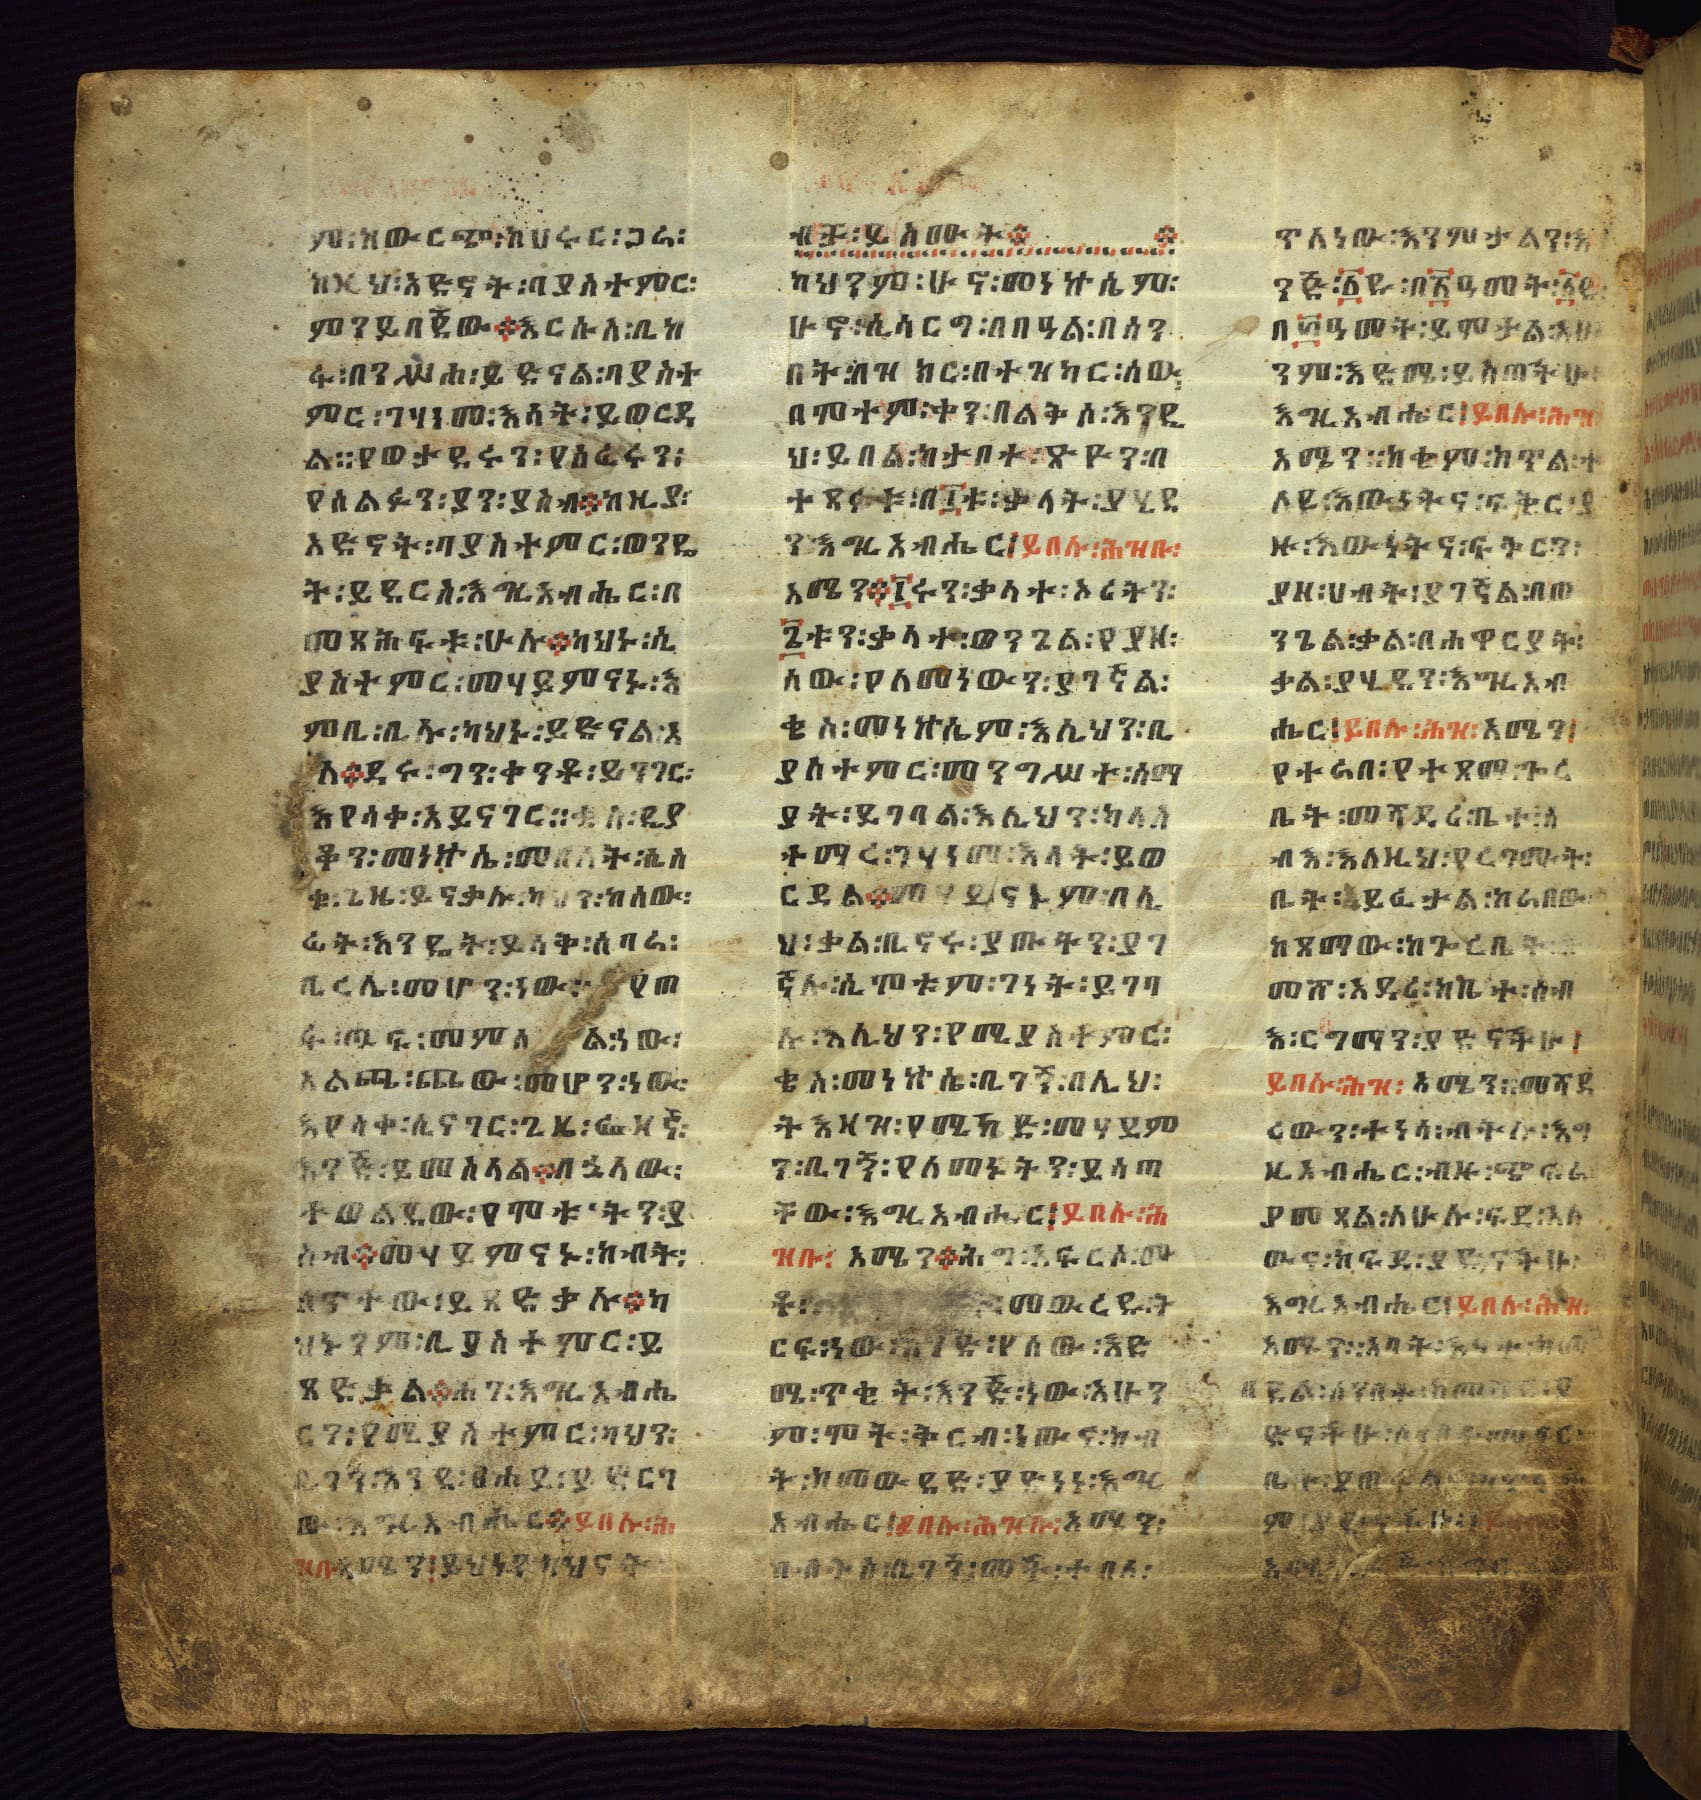 ም፡ከውርጭ፡ከሀሩር፡ጋራ፡
ከዚህ፡እድኖት፡ባያስተምር፡
ምንይበጀው፡እርሱስ፡ቢከ
ፋ፡በንሥሐ፡ይድናል፡ባያስተ
ምር፡ገሃነመ፡እሳት፡ይወርዳ
ል፡፡የወታደሩን፡የአፈሩን፡
የሰልፉን፡ያን፡ያስብ፡ከዚያ፡
እድኖት፡ባያስተምር፡ወንዴ
ት፡ይደርስ፡እግዚአብሔር፡በ
መጻሕፍቱ፡ሁሉ፡ካህኑ፡ሲ
ያስተምር፡መሃይምናኑ፡እ
ምቢ፡ቢሉ፡ካህኑ፡ይድናል፡እ
ሰ፡ደሩ፡ግን፡ቀንቶ፡ይንገር፡
እየሳቀ፡አይናገር፡፡
ቆን፡መነኵሴ፡መበለት፡ሴሰ
ቱ፡ጊዜ፡ይናቃሉ፡ካህን፡ከሰው፡
ፊት፡እንዴት፡ይሳቅ፡ሰባራ፡
ቢረሴ፡መሆን፡ነው፡ የጠ
ፋ፡ጧፍ፡መምሰል፡ነው፡
አልጫ፡ጨው፡መሆን፡ነው፡
እየሳቀ፡ሲናገር፡ጊዜ፡
እንጅ፡ይመስላል፡በኋላው፡
ተወልደው፡የሞቱትን፡ያ
ስብ፡መሃይምናኑ፡ከብት፡
ሰጥተው፡ይጸድቃሉ፡ካ
ህኑንም፡ቢያስተምር፡ይ
ጸድቃል፡ሕገ፡እግዚአብሔ
ርን፡የሚያስተምር፡ካህን፡
ቢገኝ፡እንደ፡ፀሐይ፡ያድርገ
ው፡እግዚአብሔር፡ይበሉ፡ሕ
ዝቡ፡አሜን፡ይህነን፡ካህናት
ብቻ፡ይስሙት፡
ካህንም፡ሁኖ፡መነኵሲም፡
ሁኖ፡ሲሳርግ፡በበዓል፡በሰን
በት፡በዝክር፡በተዝካር፡ሰው
በሞተም፡ቀን፡በልቅሶ፡እንዲ
ህ፡ይበል፡ከታቦተ፡ጽዮን፡በ
ተጻፉቱ፡በ፲ቱ፡ቃላት፡ያሂደ
ን፡እግዚአብሔር፡ይበሉ፡ሕዝቡ፡
አሜን፡፲ሩን፡ቃላተ፡ኦሪትን፡
፮ቱን፡ቃላተ፡ወንጌል፡የያዘ፡
ሰው፡የለመነውን፡ያገኛል፡
ቄስ፡መነኵሲም፡እሊህን፡ቢ
ያስተምር፡መንግሥተ፡ሰማ
ያት፡ይገባል፡እሊህን፡ካላስ
ተማረ፡ገሃነመ፡እሳት፡ይወ
ርዳል፡መሃይናኑም፡በሊ
ህ፡ቃል፡ቢኖሩ፡ያጡትን፡ያገ
ኛሉ፡ሲሞቱም፡ገነት፡ይገባ
ሉ፡እሊህን፡የሚያስተምር፡
ቄስ፡መነኵሴ፡ቢገኝ፡በሊህ፡
ትእዛዝ፡የሚኸድ፡መሃይም
ን፡ቢገኝ፡የለመኑትን፡ይሰጣ
ቸው፡እግዚአብሔር፡ይበሉ፡ሕ
ዝቡ፡ አሜን፡ሕግ፡አፍርሶ፡ሙ
ቶ፡ መውረዱ፡ት
ርፍ፡ነው፡እንደ፡የሰው፡እድ
ሜ፡ጥቂት፡እንጅ፡ነው፡አሁን
ም፡ሞት፡ቅርብ፡ነውና፡ከብ
ት፡ከመውደድ፡ያድነነ፡እግዚ
አብሔር፡ይበሉ፡ሕዝቡ፡አሜን፡
ቢገኝ፡መቸ፡ተበለ፡
ጥለነው፡እንምታልን፡እ
ንጅ፡ ዓመት፡
በ ዓመት፡ይሞታል፡እሁ
ንም፡እድሜ፡ይስጣችሁ፡
እግዚአብሔር፡ይበሉ፡ሕዝ
አሜን፡፡ከቂም፡ከጥል፡ተ
ለይ፡እውነትና፡ፍቅር፡ያ
ዙ፡እውነትና፡ፍቅርን፡
ያዘ፡ሀብት፡ያገኛል፡በወ
ንጌል፡ቃል፡በሐዋርያት፡
ቃል፡ያሂደን፡እግዚአብ
ሔር፡ይበሉ፡ሕዝ፡አሜን፡
የተራበ፡የተጸማ፡ጐረ
ቤት፡መሻደረ፡ቤተ፡ሰ
ብእ፡እለዚህ፡የረገሙት፡
ቤት፡ይፈታል፡ከራበው፡
ከጸማው፡ከጐረቤት፡
መሸ፡አደረ፡ከቤተ፡ሰብ
እ፡ርግማን፡ያድናችሁ፡
ይበሉ፡ሕዝ፡ አሜን፡፡መሻደ
ረውን፡ተነሳ፡ብትሉ፡እግ
ዚአብሔር፡ብዙ፡ጭፍራ
ያመጻል፡ለሁሉ፡ፍዳ፡አለ
ውና፡ከፍዳ፡ያድናችሁ፡
እግዚአብሔር፡ይበሉ፡ሕዝ፡
አሜን፡፡